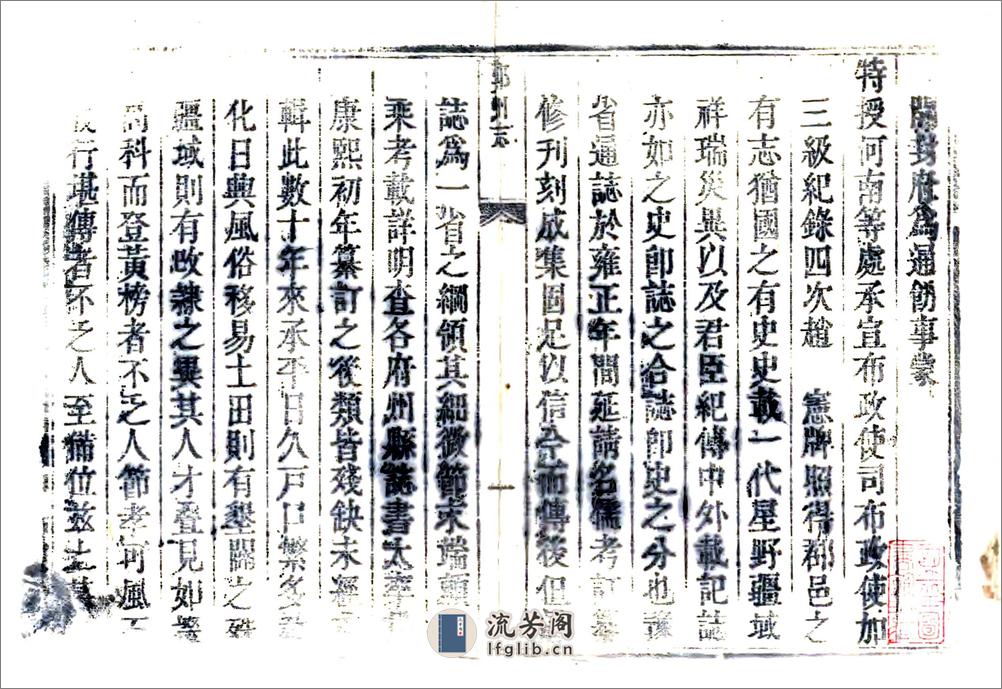 開封府爲通飭事蒙
特授河南等處承宣布政使司布政使加
三級紀錄四次趙　憲牌照得郡邑之
有志猶國之有史史載一代星野疆域
祥瑞災異以及君臣紀傳中外載記誌
亦如之史卽誌之合誌卽史之分也
省通誌於雍正年間延請名儒考訂
修刊刻成集固足以信今而傳後但
鄭州志
一
誌爲一省之綱領其細微節末端賴
乘考載詳明查各府州縣誌書大率
康熙初年纂訂之後類皆殘缺未經
輯此數十年來承平日久戶口繁多
化日興風俗移易土田則有墾闢之殊
疆域則有改隸之異其人才叠見如
高科而登黃榜者不乏人節孝可風
行堪傳者不乏人至備位茲土
流芳阁
lfglib.cn